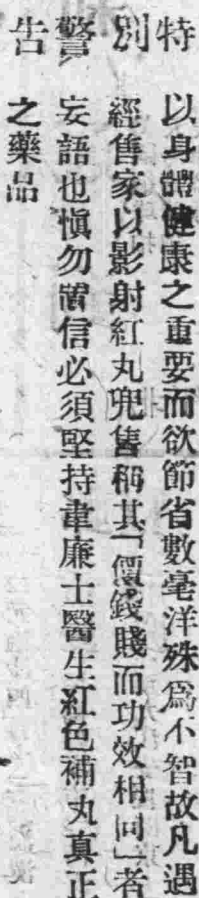 特別警告
以身體健康之重要而欲節省數毫洋殊爲不智故凡遇
經售家以影射紅丸兜售稱其「價錢賤而功效相同」者
妄語也愼勿置信必須堅持韋廉士醫生紅色補丸真正
之藥品